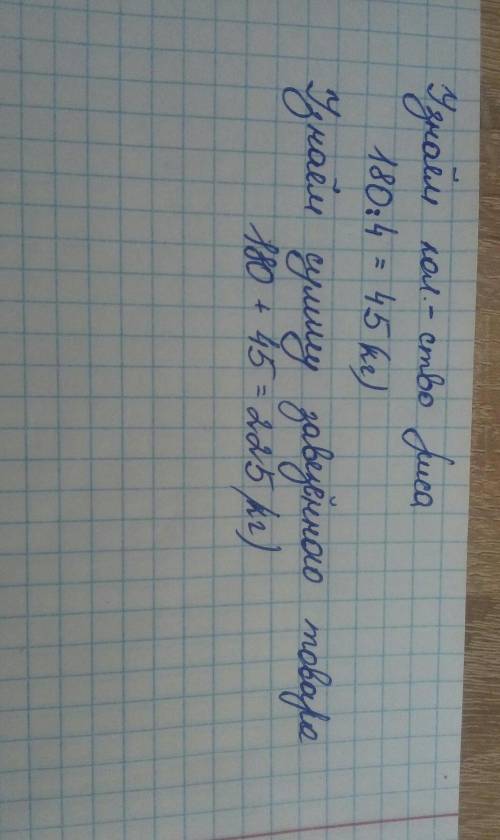 Узнаем кол.-ство риса
180:4 = 45 кг)
Узнаем сумму завезённого товара
180 + 45 = 225 (кг)